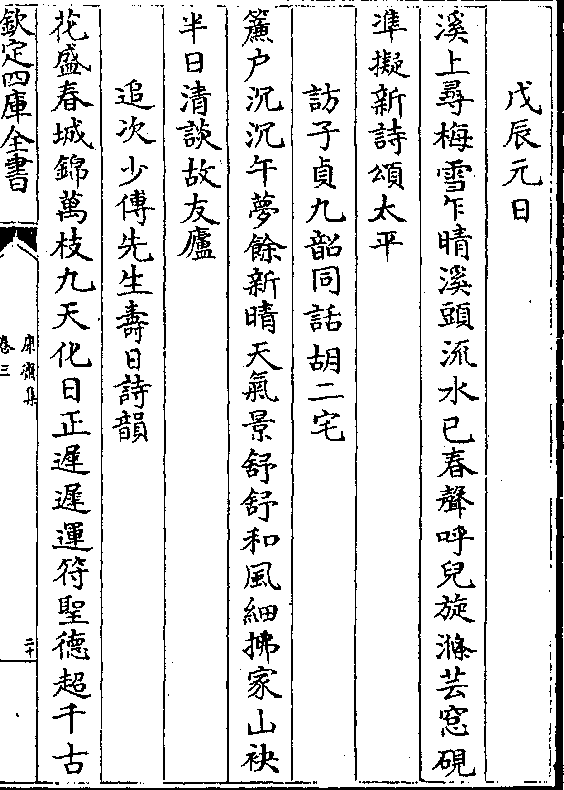 戊辰元日
溪上尋梅雪乍晴溪頭流水已春聲呼兒旋滌芸窓硯
準擬新詩頌太平
訪子貞九韶同話胡二宅
簾户沉沉午夢餘新晴天氣景舒舒和風細拂家山袂
半日清談故友廬
追次少傅先生壽日詩韻
花盛春城錦萬枝九天化日正遲遲運符聖德超千古
欽定四庫全書
康齋集
卷三
二十